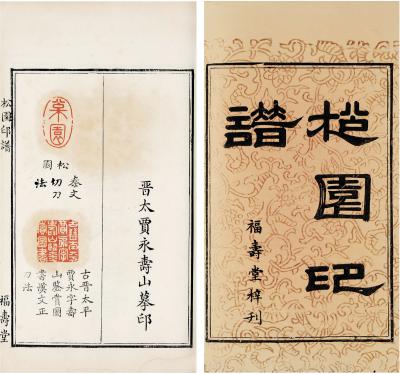 柗園印
譜
福壽堂梓刊
晋太賈永壽山摹印
松園
秦文
切刀
法
古晋太平
賈永字壽
山鑒賞圖
書漢文正
刀法
松園印譜
福壽堂